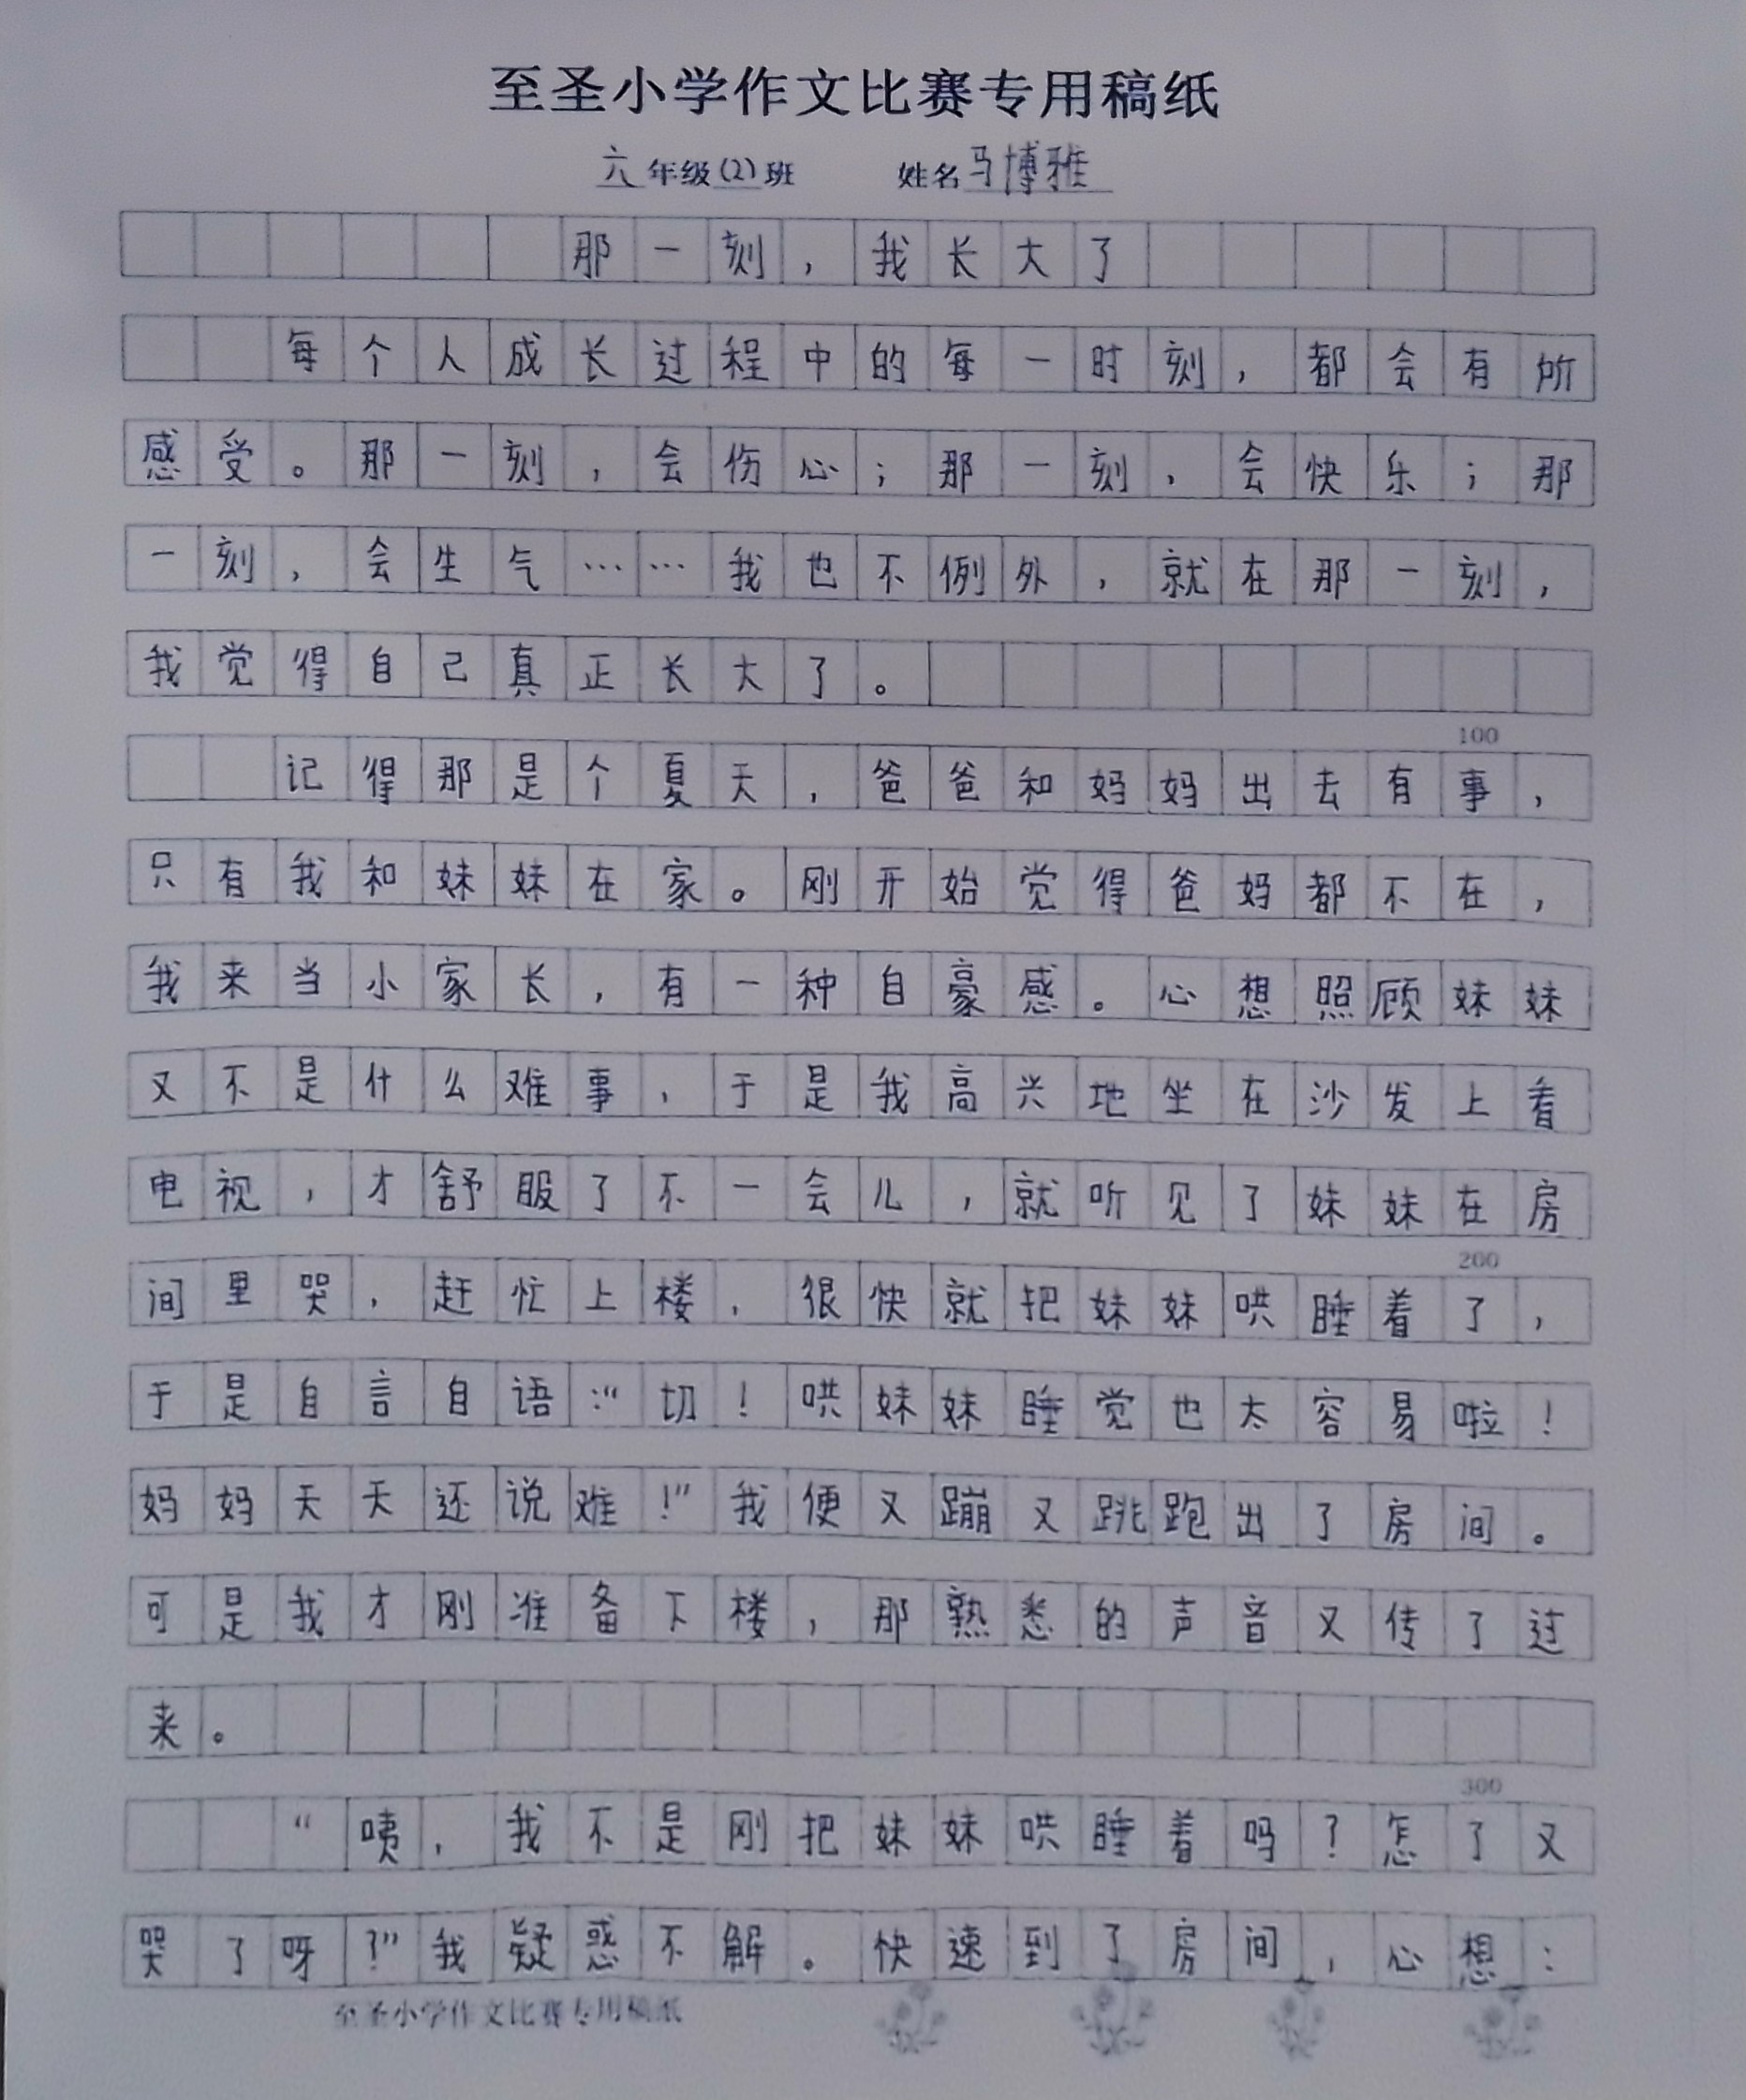 至圣小学作文比赛专用稿纸
六年级(2)班 姓名马博雅
那一刻，我长大了
每个人成长过程中的每一时刻，都会有所
感受。那一刻，会伤心；那一刻，会快乐；那
一刻，会生气……我也不例外，就在那一刻，
我觉得自己真正长大了。
100
记得那是个夏天，爸爸和妈妈出去有事，
只有我和妹妹在家。刚开始觉得爸妈都不在，
我来当小家长，有一种自豪感。心想照顾妹妹
又不是什么难事，于是我高兴地坐在沙发上看
电视，才舒服了不一会儿，就听见了妹妹在房
200
间里哭，赶忙上楼，很快就把妹妹哄睡着了，
于是自言自语：“切！哄妹妹睡觉也太容易啦！
妈妈天天还说难！”我便又蹦又跳跑出了房间。
可是我才刚准备下楼，那熟悉的声音又传了过
来。
300
“咦，我不是刚把妹妹哄睡着吗？怎了又
哭了呀？”我疑惑不解。快速到了房间，心想：
至圣小学作文比赛专用稿纸